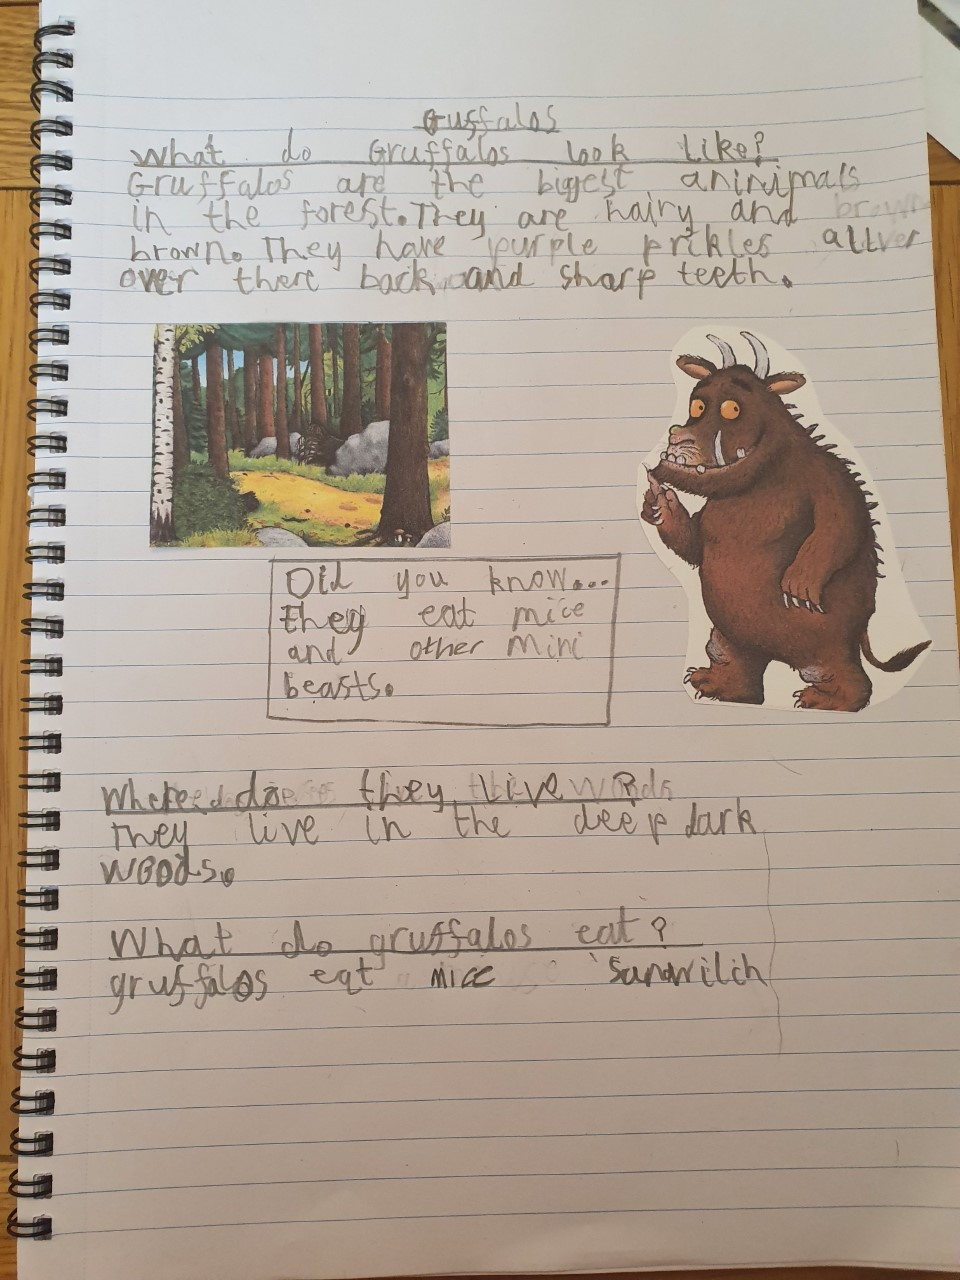 Gruffalos
What do Gruffalos look like?
Gruffalos are the biggest aninimals
in the forest. They are hairy and brown
brown. They have purple prikles allver
over there back and sharp teeth.
Did you know...
they eat mice
and other mini
beasts.
Where do they live?
They live in the deep dark
woods.
What do gruffalos eat?
gruffalos eat mice